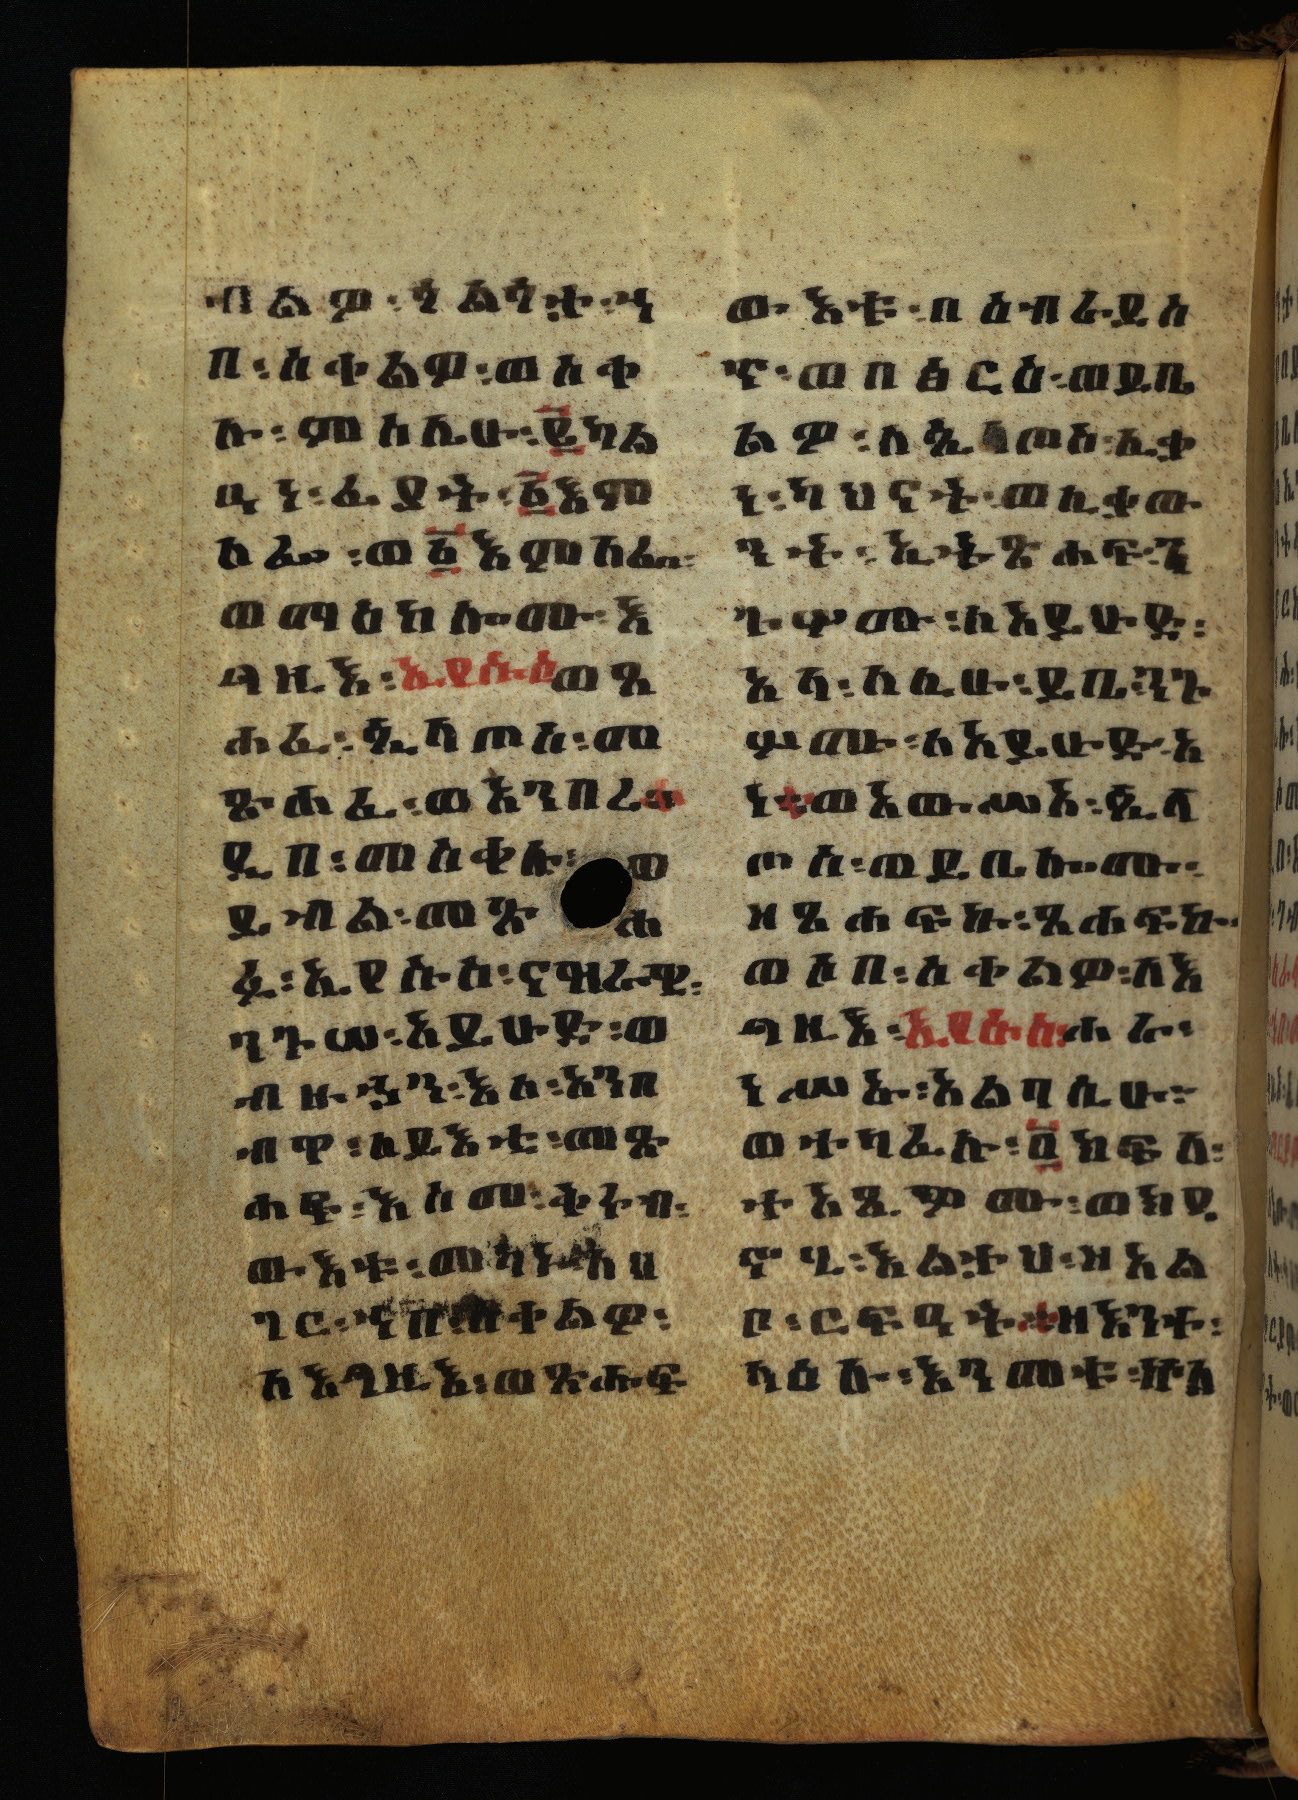 ብልዎ፡ጎልጎታ፡ኀ
በ፡ሰቀልዎ፡ወሰቀ
ሉ፡ምስሌሁ፡፪ካል
ዒነ፡ፈያት፡፩እም
ከፈ፡ወ፩እምከፈ፡
ወማዕከሎሙ፡እ
ግዚእ፡ኢየሱስወጸ
ሐፈ፡ጲላጦስ፡መ
ጽሐፈ፡ወእንበረ፡
ዲበ፡መስቀሉ፡ወ
ይብል፡መጽሐ
ፉ፡ኢየሱስ፡ናዝራዊ፡
ንጉሠ፡አይሁድ፡ወ
ብዙኃን፡እለ፡አንበ
ብዋ፡ለይእቲ፡መጽ
ሐፍ፡እስመ፡ቅሩብ፡
ውእቱ፡መካኑ፡ለሀ
ገር፡ኀበ፡ሰቀልዎ፡
ለእግዚእ፡ወጽሑፍ
ውእቱ፡በዕብራይስ
ጥ፡ወበፅርዕ፡ወይቤ
ልዎ፡ለጲላጦስ፡ሊቃ
ነ፡ካህናት፡ወሊቃው
ንት፡ኢትጸሐፍ፡ን
ጉሦሙ፡ለአይሁድ፡
አላ፡ለሊሁ፡ይቤ፡ንጉ
ሦሙ፡ለአይሁድ፡አ
ነ፡ወአውሥአ፡ጲላ
ጦስ፡ወይቤሎሙ፡
ዘጸሐፍኩ፡ጸሐፍኩ፡
ወሶበ፡ሰቀልዎ፡ለእ
ግዚእ፡ኢየሱስ፡ሐራ፡
ነሥኡ፡አልባሲሁ፡
ወተካፈሉ፡፬ክፍለ፡
ተአጺዎሙ፡ወክዳ
ኖሂ፡እልታህ፡ዘአል
ቦ፡ርፍዓት፡ዘእንተ፡
ላዕሉ፡እንመቱ፡ኵለ